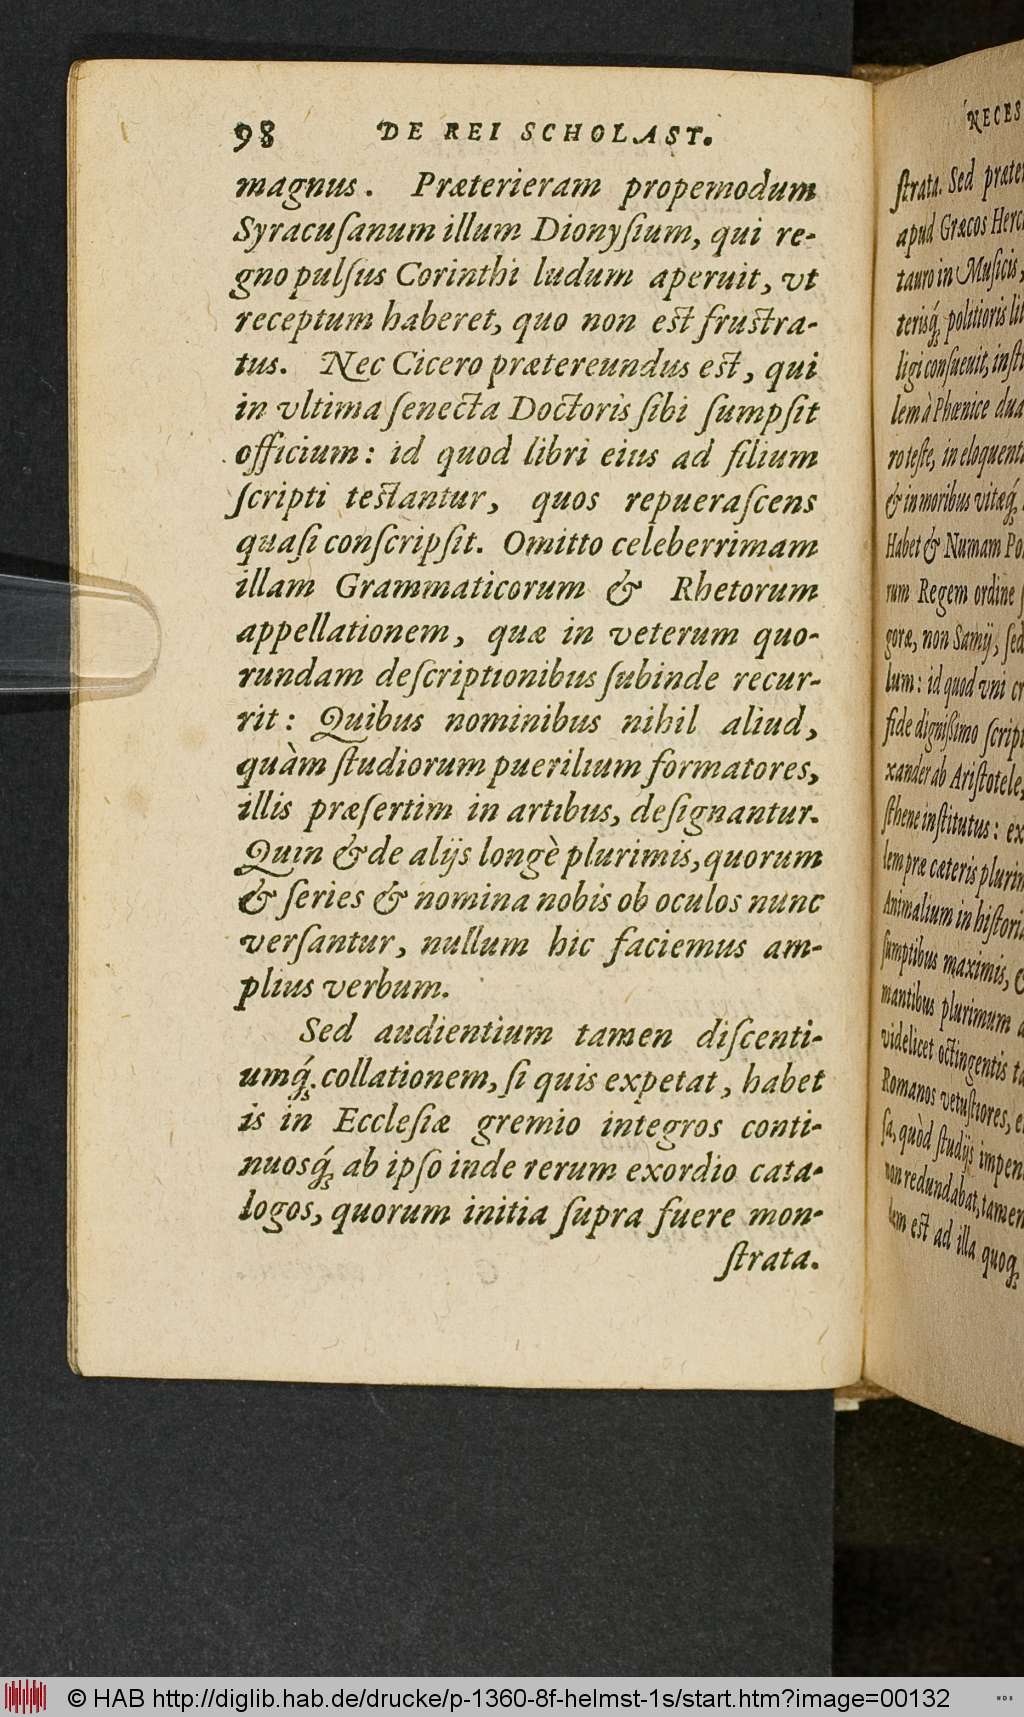 98 DE REI SCHOLAST.
magnus. Præterieram propemodum
Syracuſanum illum Dionyſium, qui re-
gno pulſus Corinthi ludum aperuit, vt
receptum haberet, quo non eſt fruſtra-
tus. Nec Cicero prætereundus eſt, qui
in vltima ſenecta Doctoris ſibi ſumpſit
officium: id quod libri eius ad filium
ſcripti teſtantur, quos repueraſcens
quaſi conſcripſit. Omitto celeberrimam
illam Grammaticorum & Rhetorum
appellationem, quæ in veterum quo-
rundam deſcriptionibus ſubinde recur-
rit: Quibus nominibus nihil aliud,
quàm ſtudiorum puerilium formatores,
illis præſertim in artibus, deſignantur.
Quin & de alijs longè plurimis, quorum
& ſeries & nomina nobis ob oculos nunc
verſantur, nullum hic faciemus am-
plius verbum.
Sed audientium tamen diſcenti-
umq́; collationem, ſi quis expetat, habet
is in Eccleſiæ gremio integros conti-
nuosq́; ab ipſo inde rerum exordio cata-
logos, quorum initia ſupra fuere mon-
ſtrata.
NECES
ſtrata. Sed præter
apud Græcos Herc
tauro in Muſicis,
terisq́; politioris lit
ligi conſueuit, inſti
lem à Phœnice dua
ro teſte, in eloquent
& in moribus vitæq́;
Habet & Numam Po
rum Regem ordine
goræ, non Samij, ſed
lum: id quod vni cr
fide digniſsimo ſcript
xander ab Ariſtotele,
ſthene inſtitutus: ex
lem præ cæteris plurim
Animalium in hiſtoria
ſumptibus maximis,
mantibus plurimum
videlicet octingentis ta
Romanos vetuſtiores,
ſa, quòd ſtudijs impen
non redundabat, tamen
lem eſt ad illa quoq;
© HAB http://diglib.hab.de/drucke/p-1360-8f-helmst-1s/start.htm?image=00132